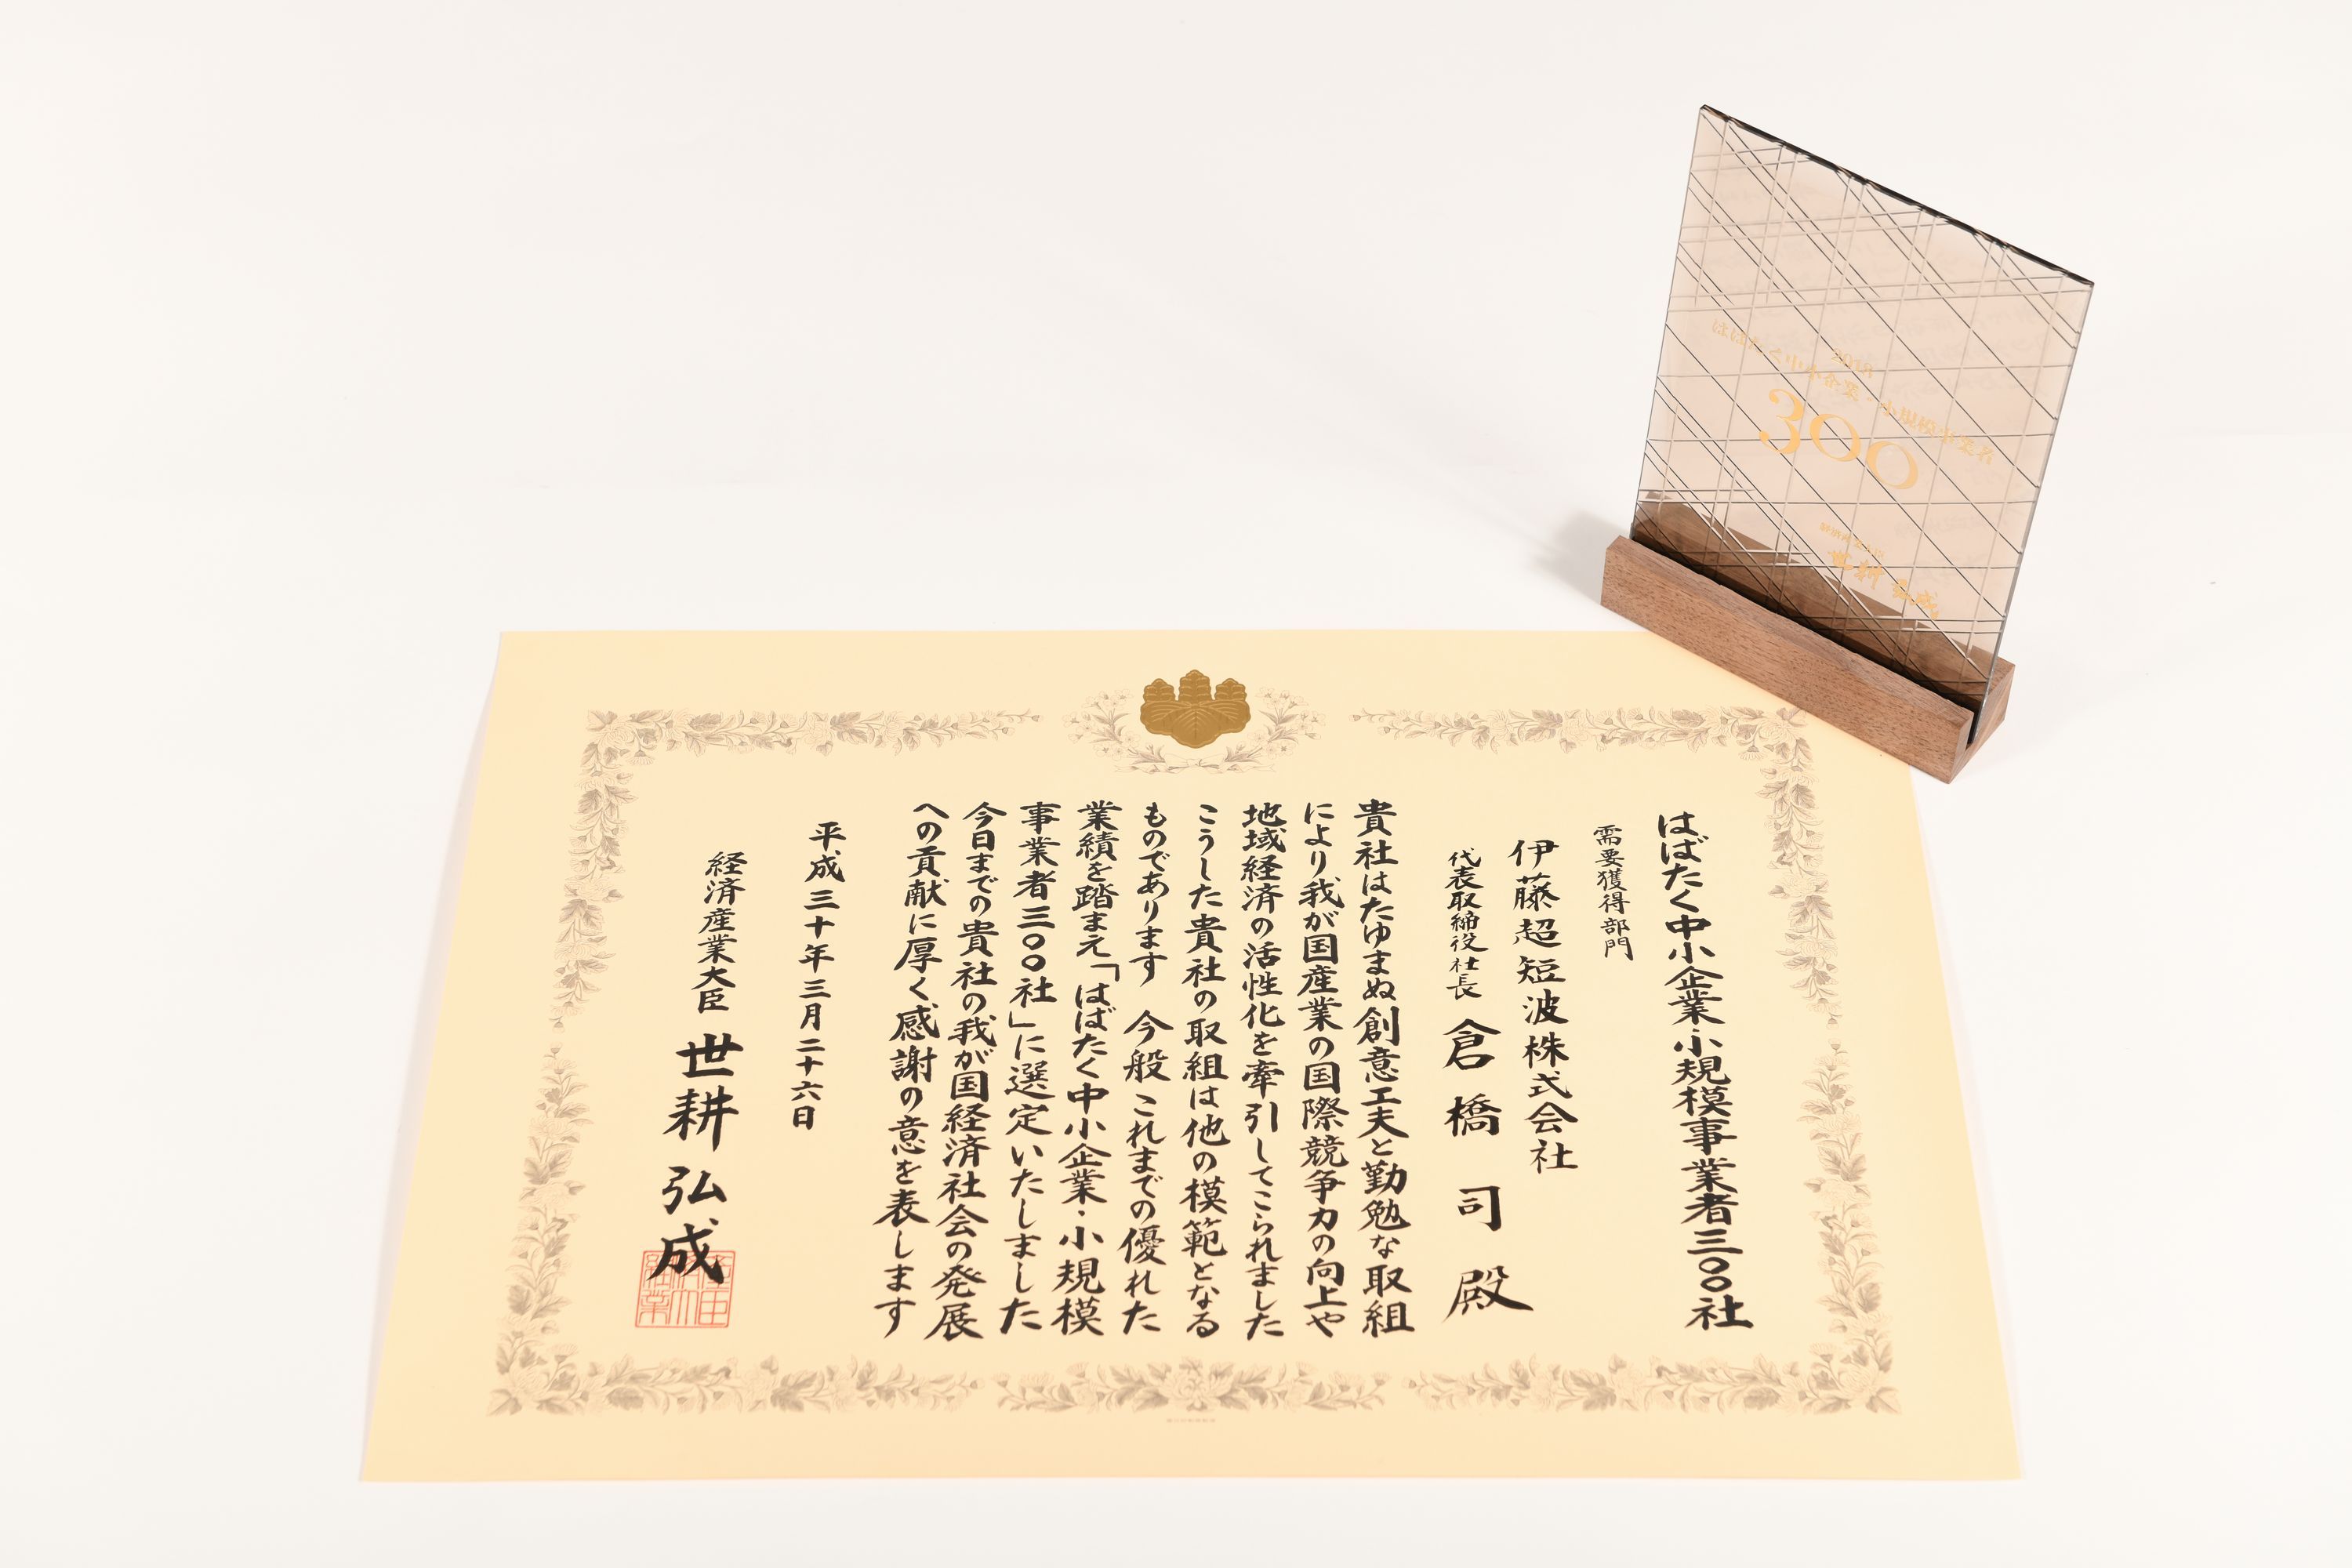 はばたく中小企業・小規模事業者三〇〇社
需要獲得部門
伊藤超短波株式会社
代表取締役社長 倉橋司殿
貴社はたゆまぬ創意工夫と勤勉な取組
により我が国産業の国際競争力の向上や
地域経済の活性化を牽引してこられました
こうした貴社の取組は他の模範となる
ものであります 今般これまでの優れた
業績を踏まえ「はばたく中小企業・小規模
事業者三〇〇社」に選定いたしました
今日までの貴社の我が国経済社会の発展
への貢献に厚く感謝の意を表します
平成三十年三月二十六日
経済産業大臣 世耕弘成
2018
はばたく中小企業・小規模事業者
300
経済産業大臣
世耕弘成